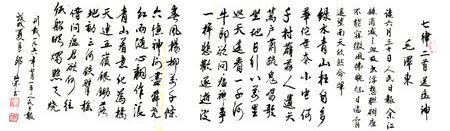 七律二首送瘟神
毛泽东
读六月三十日人民日报余江
县消灭了血吸虫浮想联翩夜
不能寐微风拂煦旭日临窗
遥望南天欣然命笔
绿水青山枉自多
华佗无奈小虫何
千村薜荔人遗矢
万户萧疏鬼唱歌
坐地日行八万里
巡天遥看一千河
牛郎欲问瘟神事
一样悲欢逐逝波
春风杨柳万千条
六亿神州尽舜尧
红雨随心翻作浪
青山着意化为桥
天连五岭银锄落
地动三河铁臂摇
借问瘟君欲何往
纸船明烛照天烧